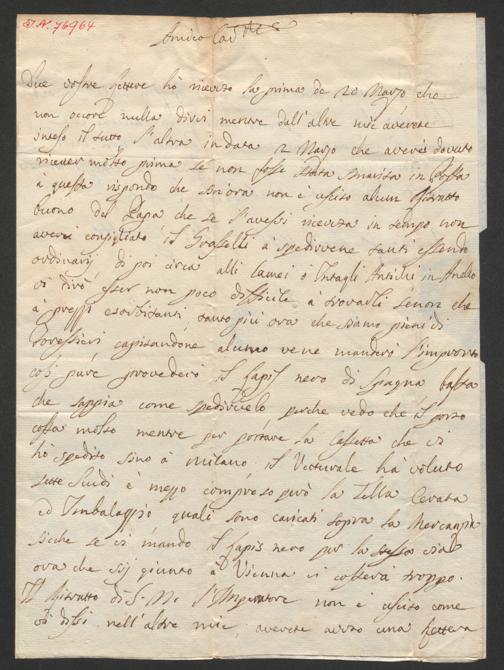 I.N. 76964
Amico Car.mo
Due vostre lettere hò ricevuto la prima de 20 Marzo, che
non ocore nulla dirvi mentre dall'altre mie averete
inteso il tutto l'altra in data 2 Marzo che averei dovuto
ricever molto prima se non fosse stata smarita in Posta
à questa rispondo che sin'ora non è uscito alcun Ritratto
buono del Papa che se l'avessi ricevuta in tempo non
averei consigliato il à spedirvene tanti essendo
ordinarij, di poi circa alli Camei ò Intagli Antichi in Anello
vi dirò esser non poco dificile à trovarli senon che
à prezzi esorbitanti, tanto più ora che siamo pieni di
Foressieri capitandone alcuno vene manderò l'impronto
così pure provederò il lapis nero di Spagna basta
che sappia come spedirvelo, perche vedo che il porto
costa molto mentre per portare la Cassetta che vi
hò spedito sino à Milano il Vetturale hà voluto
sette Scudi è mezzo compreso però la Tella Cerata
ed Imbalaggio quali sono caricati sopra la Mercanzia
sicche se vi mando il lapis nero per la stessa via
ora che sij giunto à Vienna vi costerà troppo.
Il Ritratto di S. M. l'Imperatore non è uscito come
vi dissi nell'altre mie, averete avuto una lettera